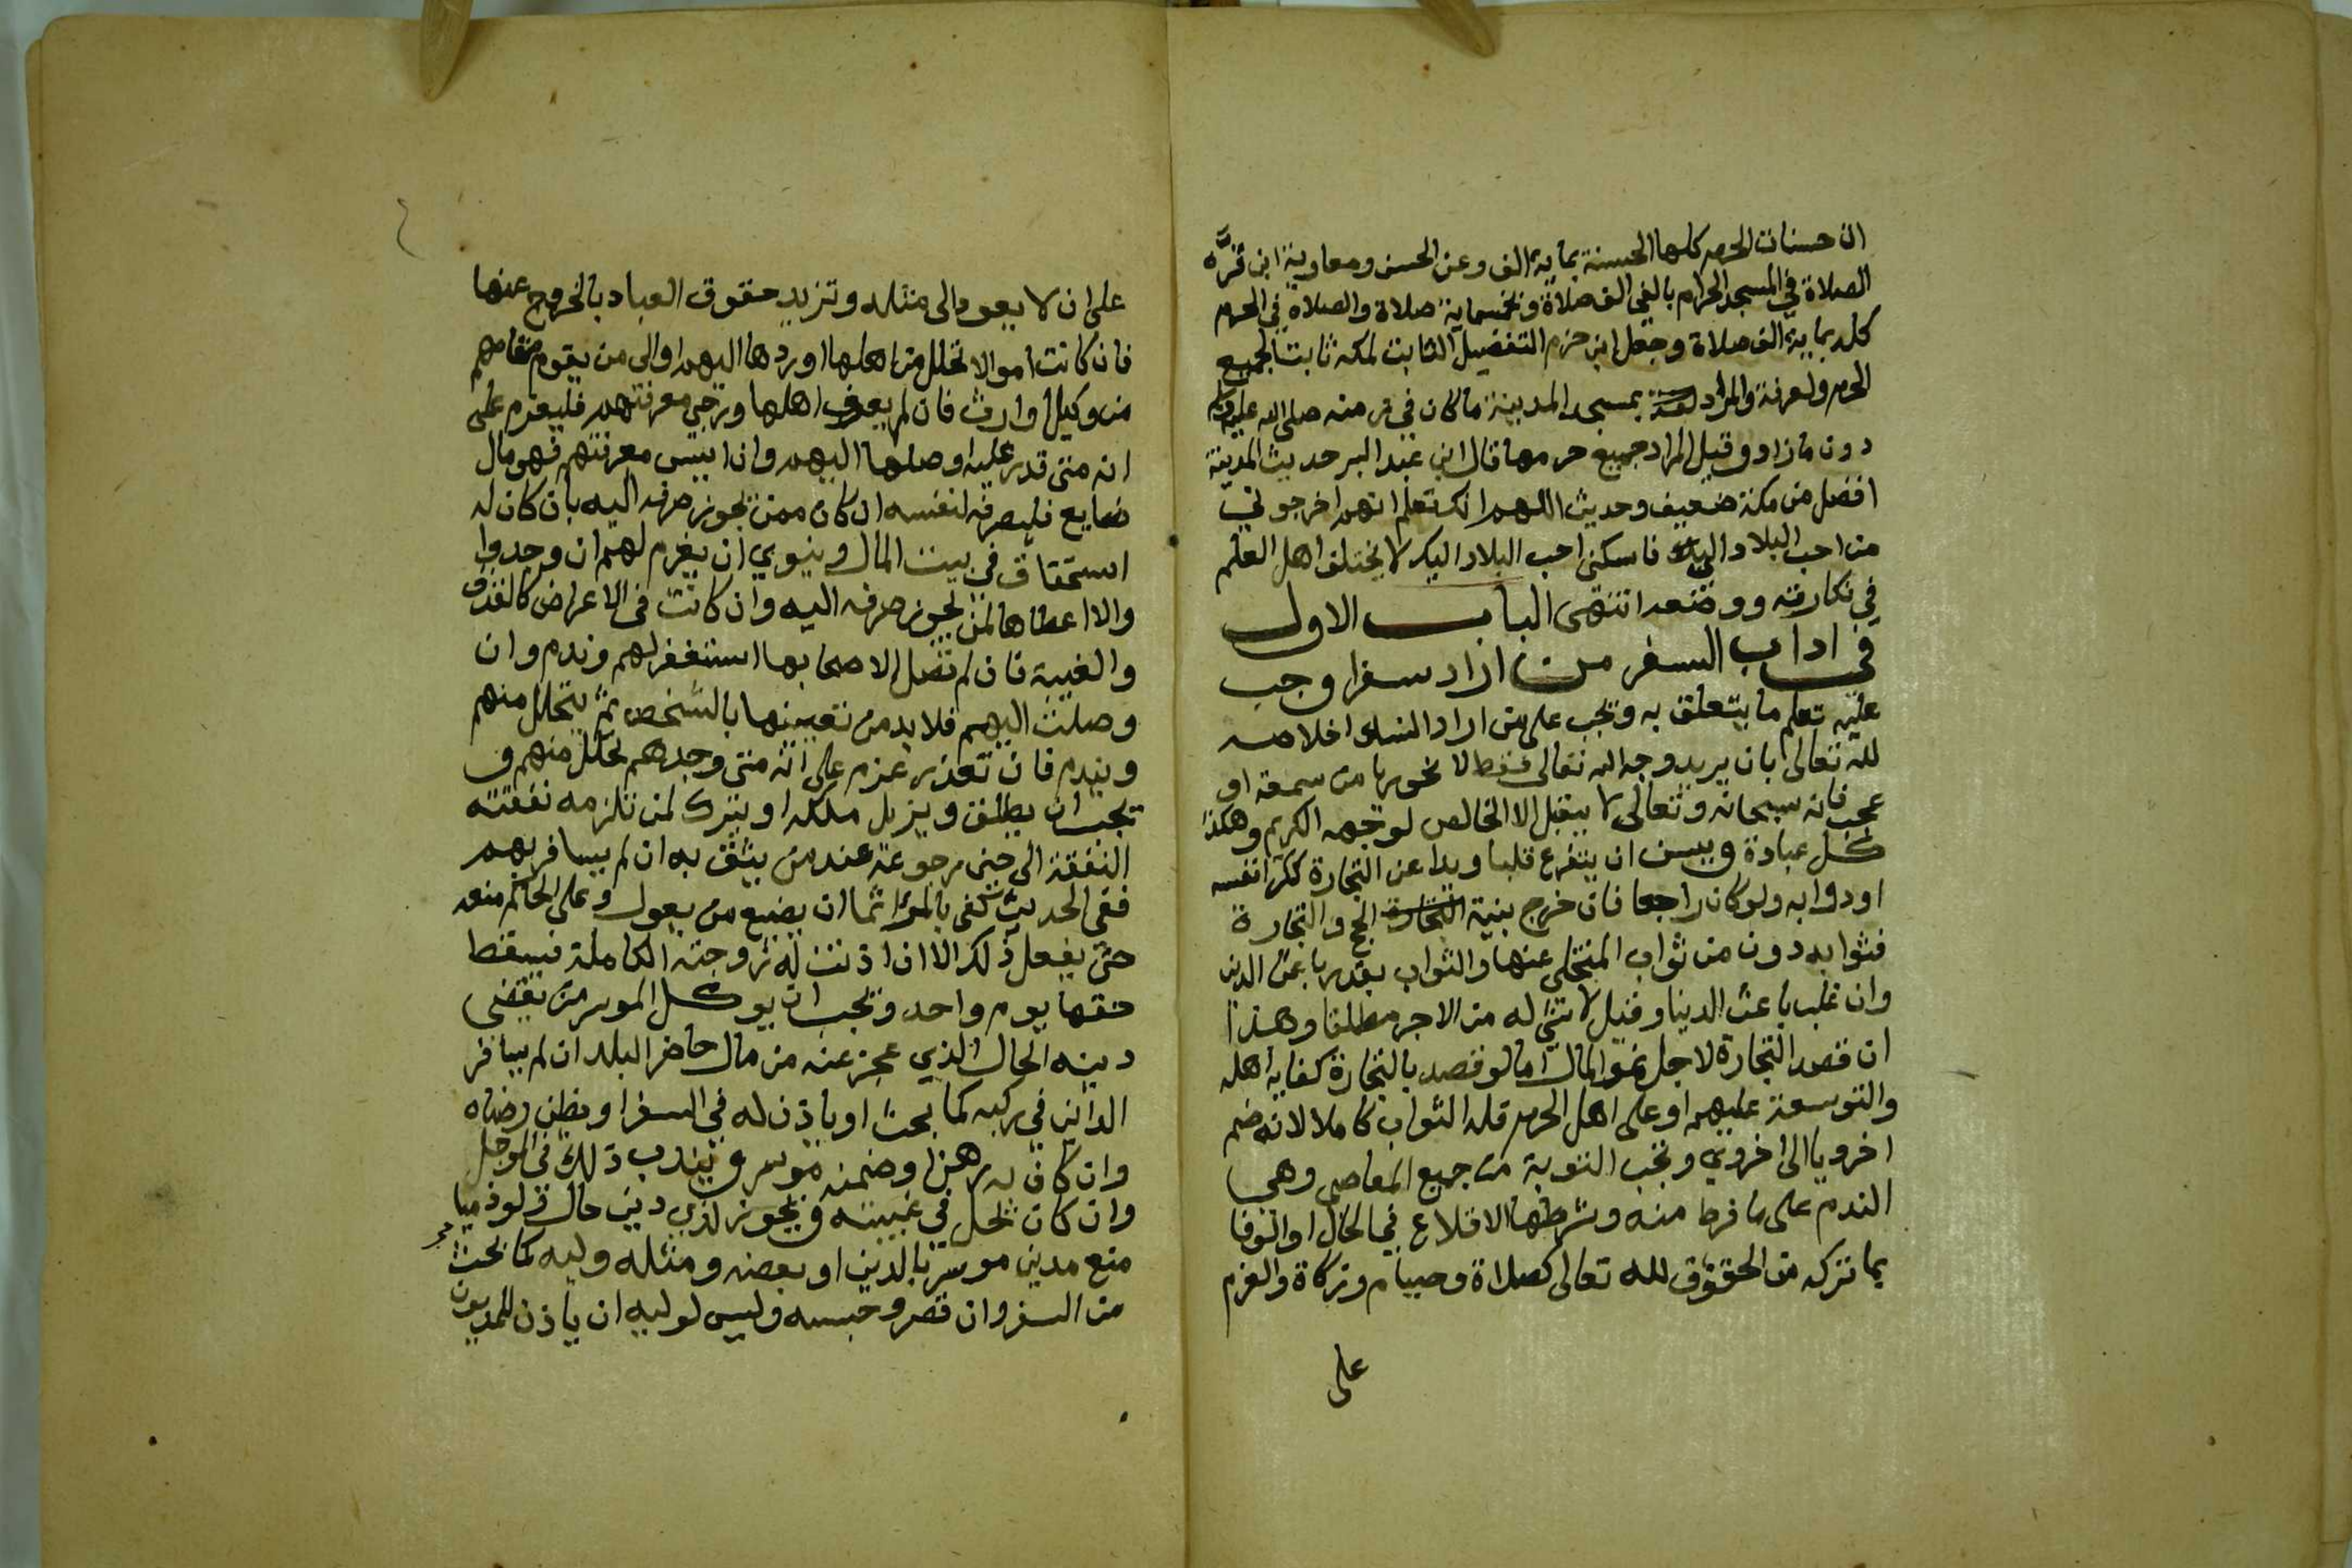 ان حسنات الحرم كلها الحسنة بماية الف وعن الحسن ومعاوية ابن قرَّه
الصلاة في المسجد الحرام بالفي الف صلاة وخمسماية صلاة والصلاة في الحرم
كله بماية الف صلاة وجعل ابن حزم التفضيل الثابت لمكه ثابتا لجميع
الحرم ولعرفة والمراد بمسجد المدينة ما كان في زمنه صلى الله عليه وسلم
دون ما زاد وقيل المراد جميع حرمها قال ابن عبد البر حديث المدينة
افضل من مكة ضعيف وحديث اللهم انك تعلم انهم اخرجوني
من احب البلاد الي فاسكني احب البلاد اليك لا يختلف اهل العلم
في نكارته ووضعه انتهى الباب الاول
في اداب السفر من اراد سفرا وجب
عليه تعلم ما يتعلق به ويجب على من اراد النسك اخلاصه
لله تعالى بان يريد وجه الله تعالى فقط لا نحو ريا من سمعة او
عجب فانه سبحانه وتعالى لا يقبل الا الخالص لوجهه الكريم وهكذا
كل عبادة ويسن ان يتفرغ قلبا ويدا عن التجارة ككرا نفسه
او دوابه ولو كان راجعا فان خرج بنية التجارة الحج والتجارة
فثوابه دون من ثواب المتخلي عنها والثواب بقدر باعث الدين
وان غلب باعث الدينا وقيل لا شي له من الاجر مطلقا وهذا
ان قصد التجارة لاجل نمو المال اما لو قصد بالتجارة كفاية اهله
والتوسعة عليهم او على اهل الحرم فله الثواب كاملا لانه ضم
اخرويا الى اخروي وتجب التوبة من جميع المعاصي وهي
الندم على ما فرط منه وشرطها الاقلاع في الحال او الوفا
بما تركه من الحقوق لله تعالى كصلاة وصيام وزكاة والعزم
على
على ان لا يعود الى مثله وتزيد حقوق العباد بالخروج عنها
فان كانت اموالا تحلل من اهلها او ردها اليهم او الى من يقوم مقامهم
من وكيل او ارث فان لم يعرف اهلها ورجي معرفتهم فليعزم على
انه متى قدر عليه اوصلها اليهم وان ايس معرفتهم فهو مال
ضايع فليصرفه لنفسه ان كان ممن يجوز صرفه اليه بان كان له
استحقاق في بيت المال وينوي ان يغرم لهم ان وجدوا
والا اعطاها لمن يجوز صرفه اليه وان كانت في الاعراض كالقذف
والغيبة فان لم تصل الا صحابها استغفر لهم وندم وان
وصلت اليهم فلا بد من تعيينها بالشخص ثم يتحلل منهم
ويندم فان تعذر عزم على انه متى وجدهم تحلل منهم و
تجب ان يطلق ويزيل ملكه او يترك لمن تلزمه نفقته
النفقة الى حين رجوعه عند من يثق به ان لم يسافر بهم
ففي الحديث كفى بالمرا اثما ان يضيع من يعول وعلى الحاكم منعه
حتى يفعل ذلك الا ان اذنت له زوجته الكاملة فيسقط
حقها يوم واحد وتجب ان يوكل الموسر من يقضي
دينه الحال الذي عجز عنه من مال حاضر البلد ان لم يسافر
الداين في ركبه كما بحث او ياذن له في السفر او يظن رضاه
وان كان به رهن او ضمنه موسر ويندب ذلك في الموجل
وان كان يحل في غيبته ويجوز لذي دين حال ولو ذميا
منع مدين موسر بالدين او بعضه ومثله وليه كما بحث
من السفر وان قصر وحبسه وليس لوليه ان ياذن للمديون